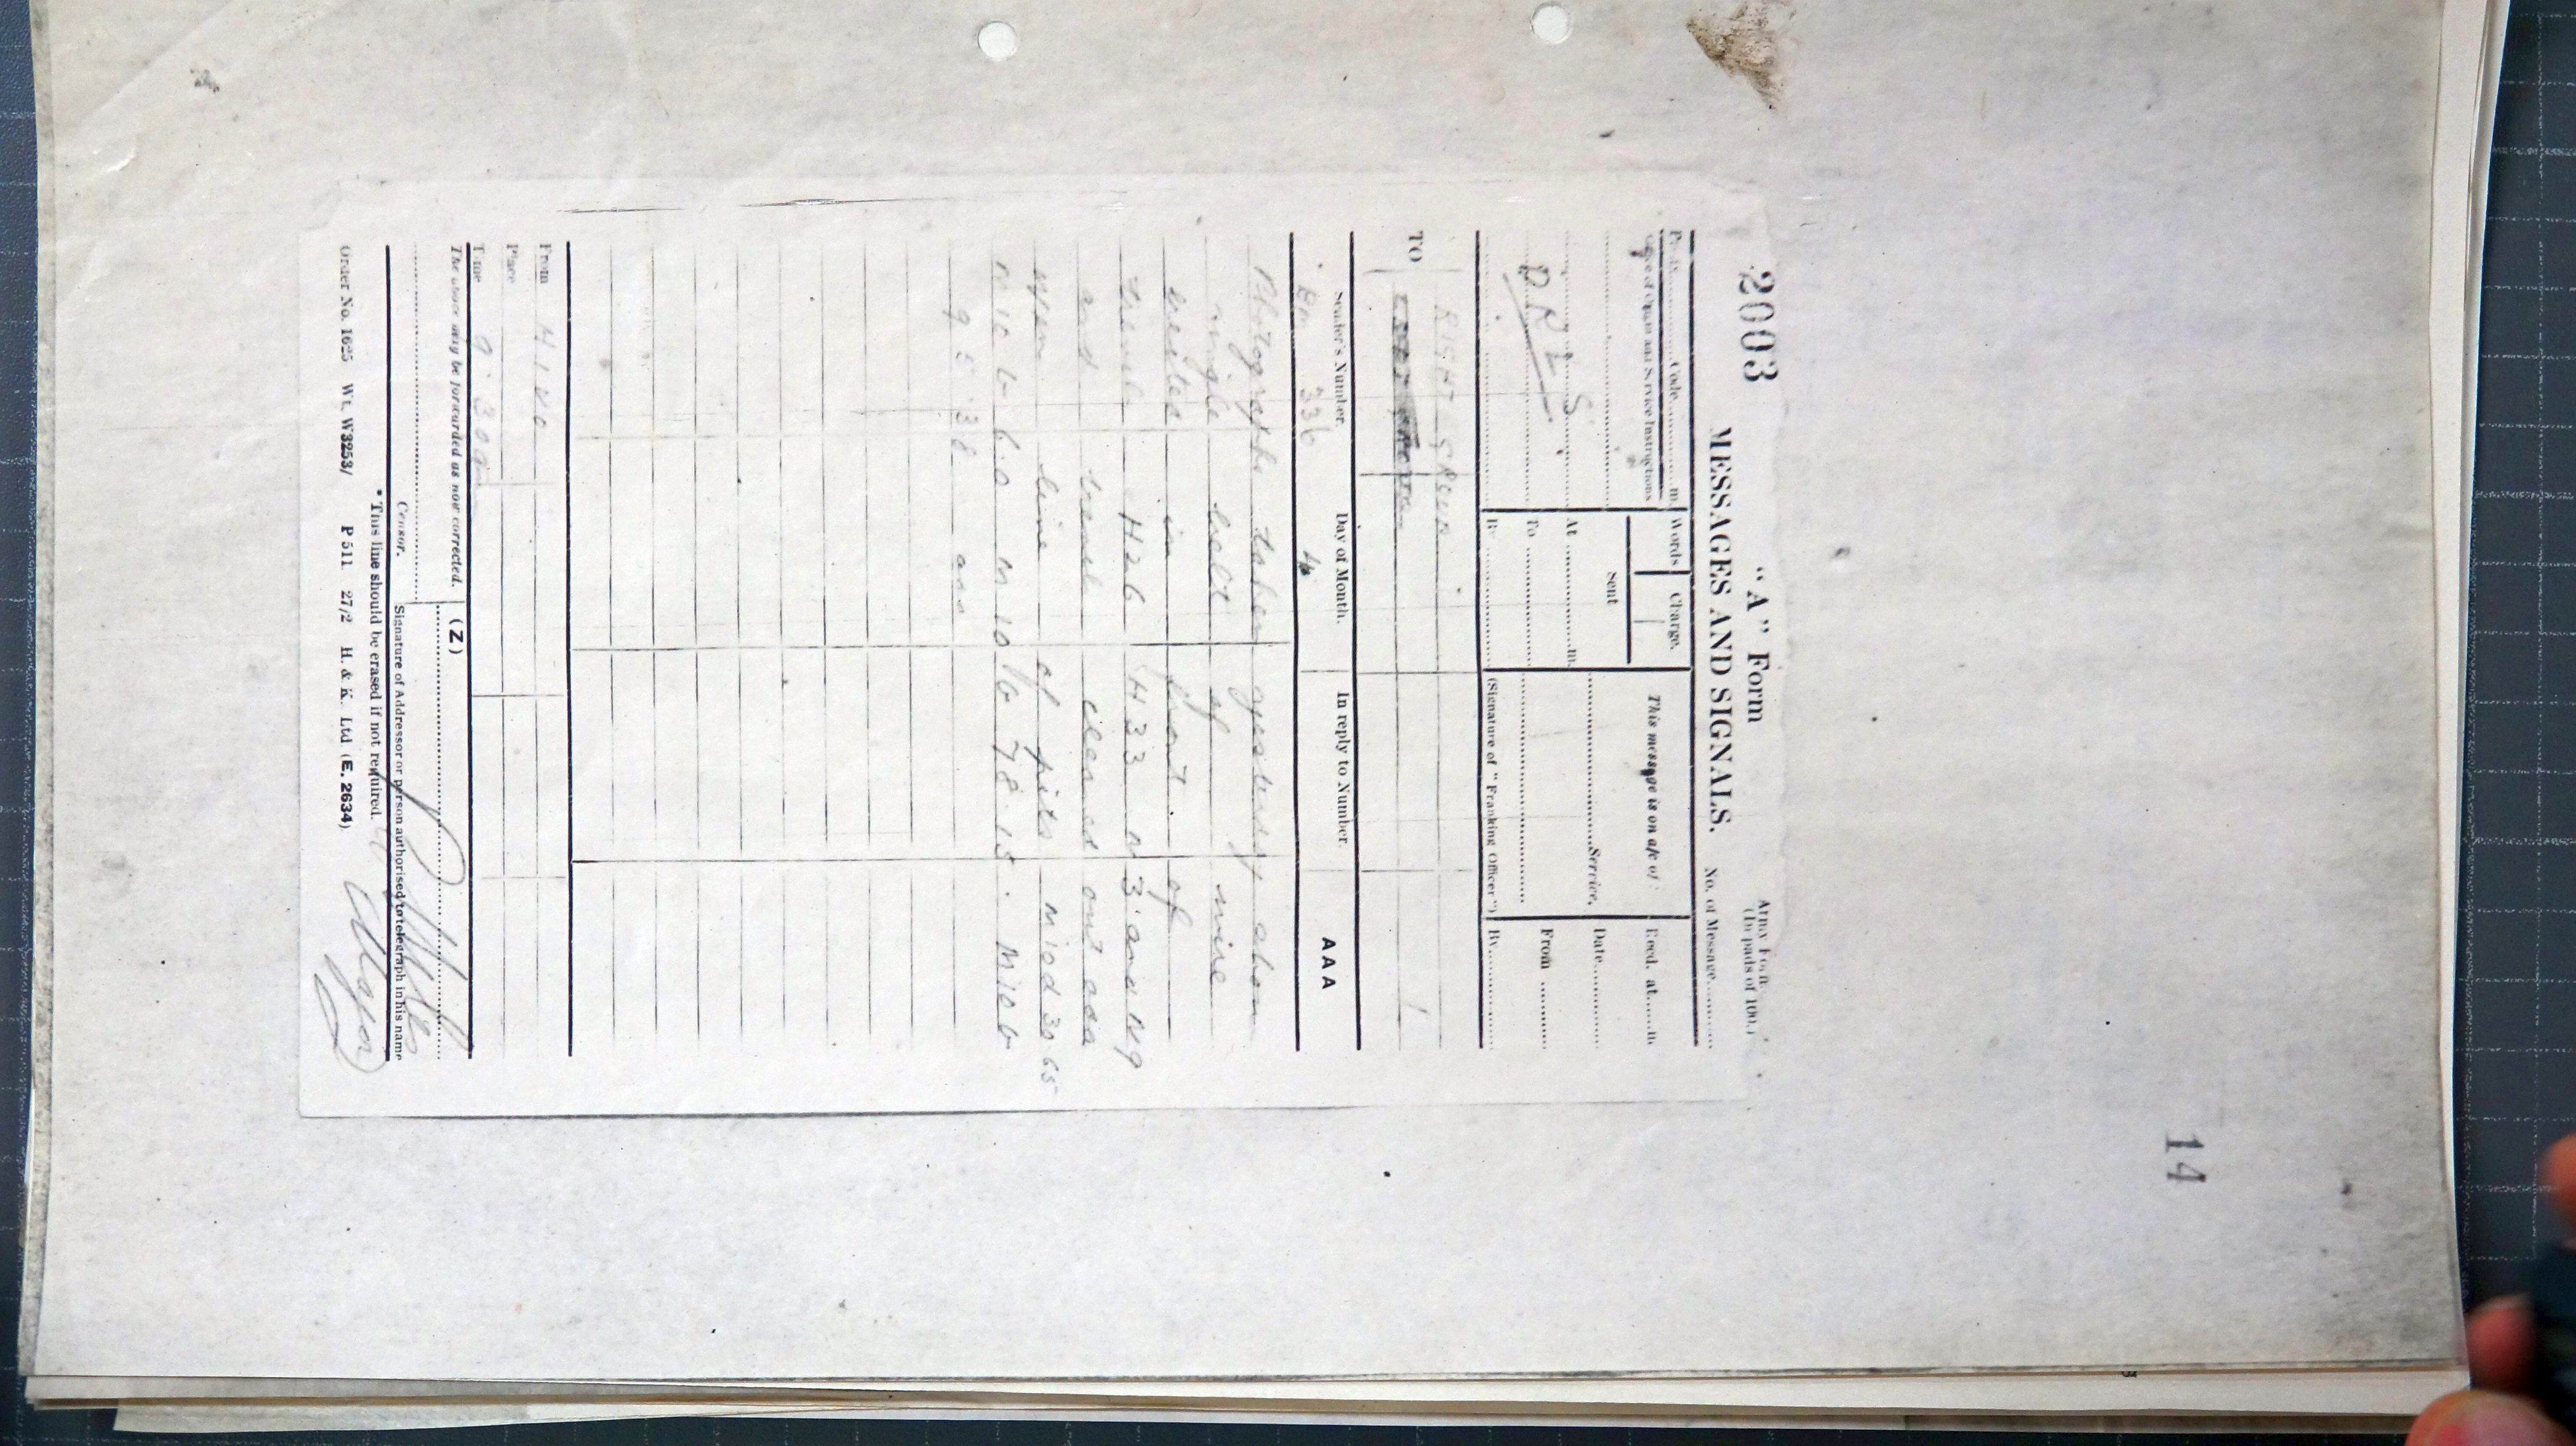 14
2003
"A" Form
Army Form
(In pads of 100.)
MESSAGES AND SIGNALS.
No. of Message
Code m
Words
Charge.
This message is on a/c of:
Recd. at m
Office of Origin and Service Instructions
Sent
At m.
Service.
Date
D R L S
To
From
By
(Signature of "Franking Officer")
By
TO
RIGHT GROUP
Sender's Number.
Day of Month.
In reply to Number
AAA
BM 336
4
Photographs taken yesterday show
single belt of wire
in front of
trench H26 H33 N3 and N9
and trench cleared out aaa
line of pits M10d 30 65
M10b 60 M10b 78.15. M10b
95.38 aaa
From
Place
Time
9.30 am
The above may be forwarded as now corrected.
(Z)
Censor.
Signature of Addressor or person authorised to telegraph in his name
Major
* This line should be erased if not required.
Order No. 1625 Wt. W3253/ P 511 27/2 H. & K. Ltd (E. 2634)